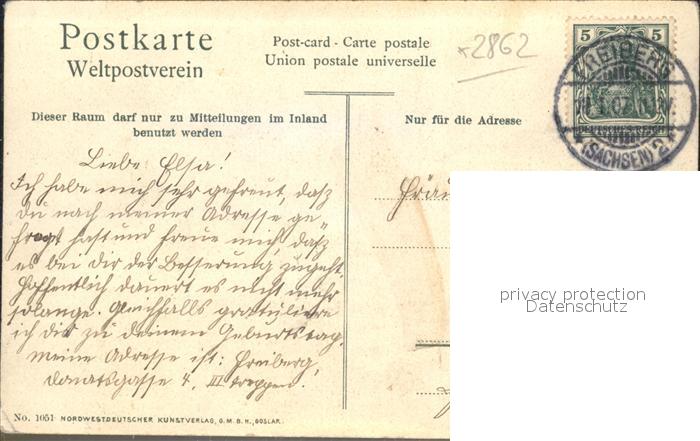 Postkarte
Weltpostverein
Post-card - Carte postale
Union postale universelle
*2862
5 5
FREIBERG
07
DEUTSCHES REICH
* (SACHSEN) 2 *
Dieser Raum darf nur zu Mitteilungen im Inland
benutzt werden
Nur für die Adresse
Liebe Elsa!
Ich habe mich sehr gefreut, daß
du nach meiner Adresse ge-
fragt hast und freue mich, daß
es bei dir der Besserung zugeht.
Hoffentlich dauert es nicht mehr
solange. Gleichfalls gratuliere
ich dir zu deinem Geburtstag.
Meine Adresse ist: Freiberg,
Donatsgasse 4, III Treppen.
Fräu
privacy protection
Datenschutz
No. 1051 NORDWESTDEUTSCHER KUNSTVERLAG, G.M.B.H., GOSLAR.